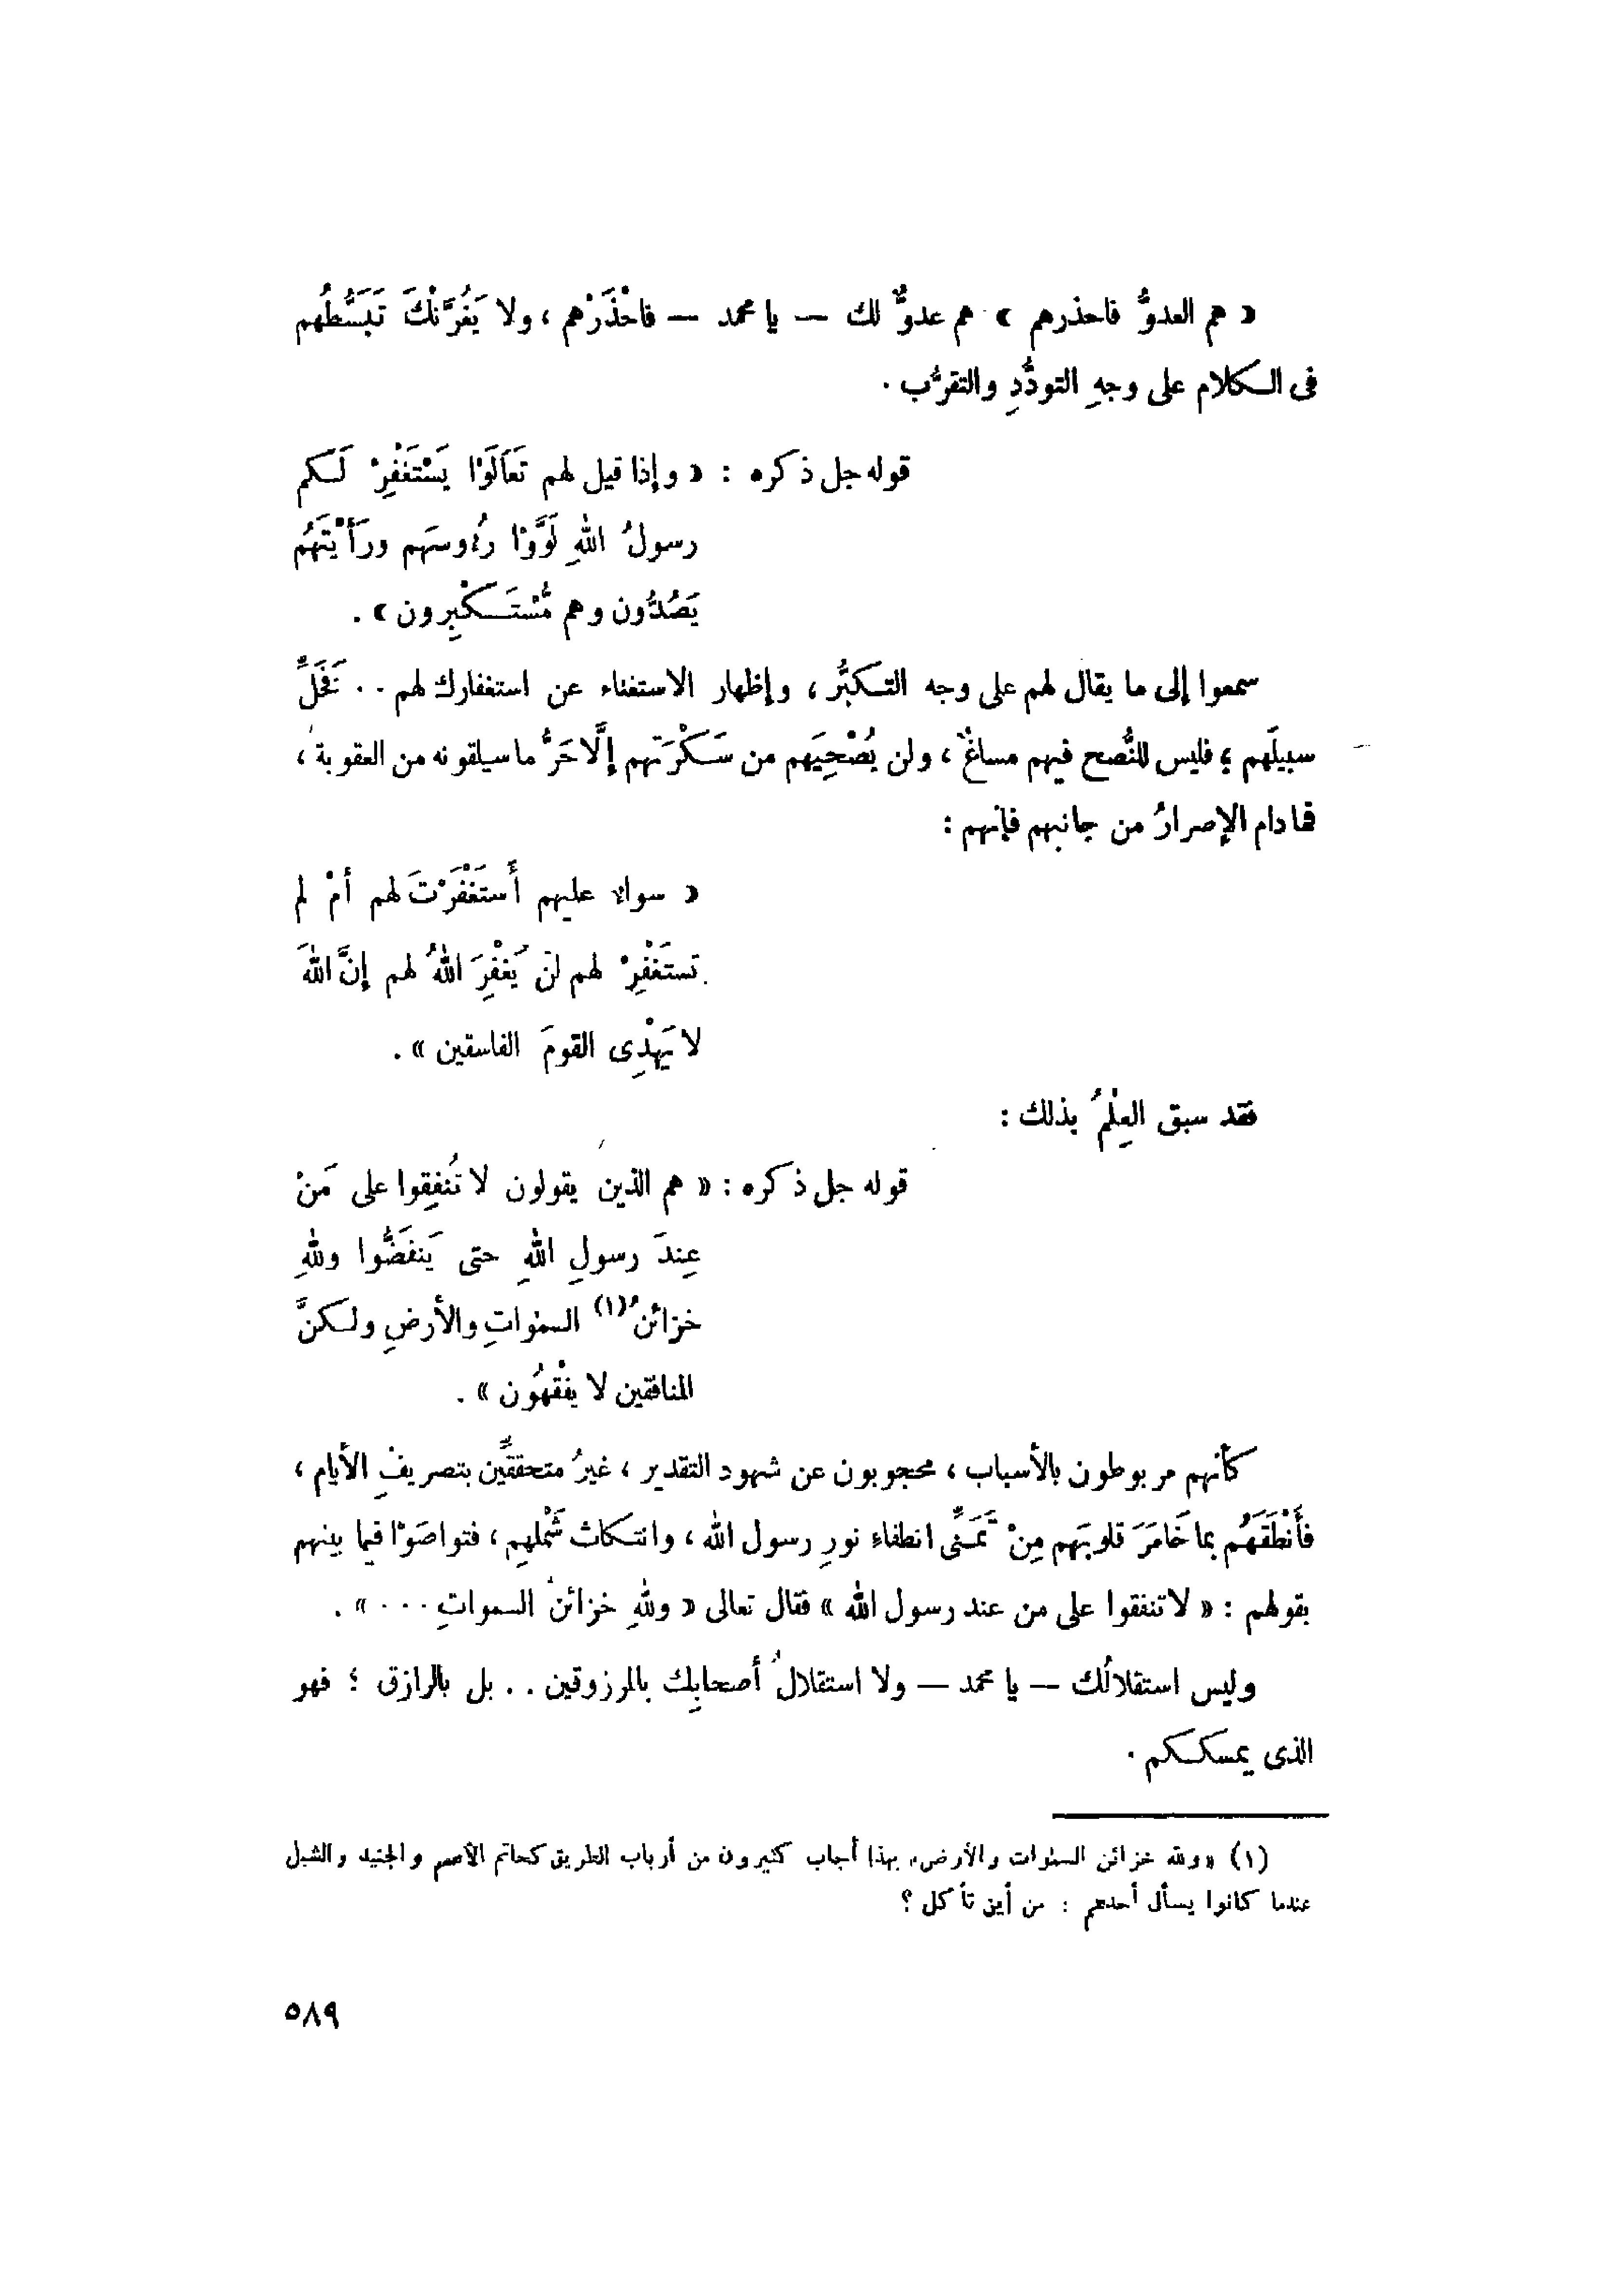 « هم العدوُّ فاحذرهم » هم عدوٌّ لك — يا محمد — فاحْذَرْهم ، ولا يَغُرَّنْكَ تَبَسُّطُهم
فى الـكلام على وجهِ التودُّدِ والتقرُّب .
قوله جل ذكره : « وإذا قيل لهم تَعَالَوْا يَسْتَغْفِرْ لَـكم
رسولُ اللهِ لَوَّوْا رُءوسَهم ورَأَيْتَهُم
يَصُدُّون وهم مُّسْتَـكْبِرون » .
سمعوا إلى ما يقال لهم على وجه التـكبُّر ، وإظهار الاستغناء عن استغفارك لهم . . فَخَلِّ
سبيلَهم ؛ فليس للنُّصح فيهم مساغٌ ، ولن يُصْحِيَهم من سَـكْرَتهم إلَّا حَرُّ ما سيلقونه من العقوبة ،
فما دام الإصرارُ من جانبهم فإنهم :
« سواء عليهم أَستَغْفَرْتَ لهم أمْ لم
تستَغْفِرْ لهم لن يَغْفِرَ اللهُ لهم إنَّ اللهَ
لا يَهْدِى القومَ الفاسقين » .
فقد سبق العِلْمُ بذلك :
قوله جل ذكره : « هم الذين يقولون لا تُنفِقوا على مَنْ
عِندَ رسولِ اللهِ حتى يَنفَضُّوا وللهِ
خزائنُ (١) السمٰواتِ والأرضِ ولـكنَّ
المنافقين لا يفْقَهُون » .
كأنهم مربوطون بالأسباب ، محجوبون عن شهود التقدير ، غيرُ متحققِّين بتصريفِ الأيام ،
فأَنْطَقَهُم بما خَامَرَ قلوبَهم مِنْ تَمَنِّى انطفاءِ نورِ رسول الله ، وانتـكاث شَمْلهِم ، فتواصَوْا فيما بينهم
بقولهم : « لا تنفقوا على من عند رسول الله » فقال تعالى « وللهِ خزائنُ السمواتِ . . . » .
وليس استقلالُك — يا محمد — ولا استقلالُ أصحابِك بالمرزوقين . . بل بالرازق ؛ فهو
الذى يمسكـكم .
(١) « ولله خزائن السمٰوات والأرض » بهذا أجاب كثيرون من أرباب الطريق كحاتم الأصم والجنيد والشبلى
عندما كانوا يسأل أحدهم : من أين تأكل ؟
٥٨٩